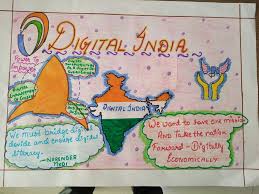 DIGITAL INDIA
Power To
Empower
DIGITAL INDIA
We must bridge digi
divide and ensure digital
literacy.
-NARENDER
MODI
We want to save one mission
And take the nation
Forward - Digitally
Economically